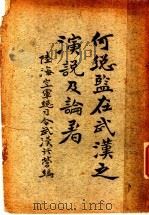 何總監在武漢之
演説及論著
陸海空軍總司令武漢行營編